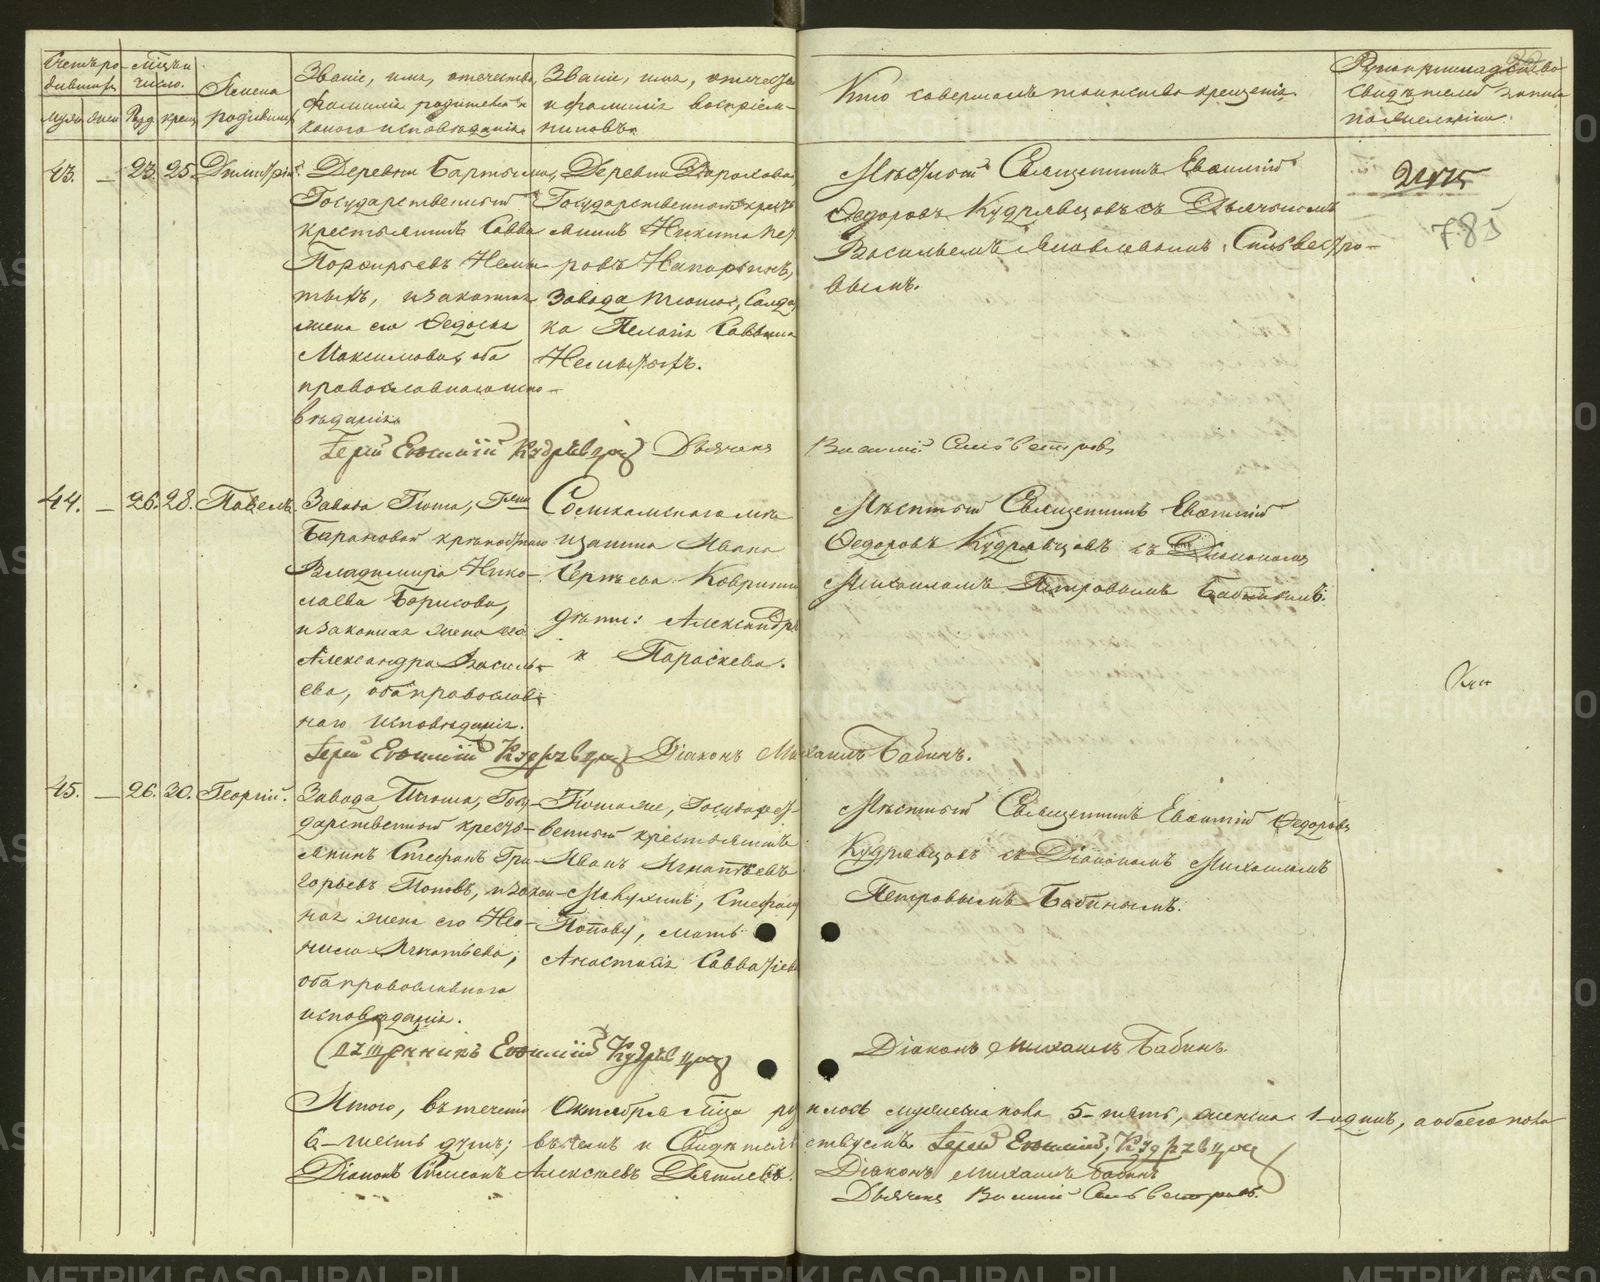 Счетъ родившихся
Мѣсяцъ и число.
мужска женска
Рожд. крещ.
Имена родившихся
Званіе, имя, отечество, фамилія родителей и какого исповѣданія
Званіе, имя, отечество и фамилія воспріемниковъ
Кто совершалъ таинство крещенія
Рукоприкладство свидѣтелей записи по желанію.
43. — 23. 25. Димитрій.
Деревни
Государственный
крестьянинъ Савва
Порфирьевъ Немы-
тыхъ, и законная
жена его Федосья
Максимова, оба
православнаго испо-
вѣданія
Деревни
Государственный кресть
янинъ Никита Пет
ровъ
Завода
ка Пелагія Саввина
Немытыхъ.
Мѣстный Священникъ Евфимій
Федоровъ Кудрявцовъ съ Дьячкомъ
Васильемъ Сильвестро-
вымъ.
785
Іерей Евфимій Кудрявцовъ Дьячекъ Василій Сильвестровъ
44. — 26. 28. Павелъ.
Завода
крѣпостнаго
Владимира Нико-
лаева Борисова,
и законная жена его
Александра Василь-
ева, оба православ-
наго исповѣданія.
Соликамскаго мѣ
щанина Ивана
Сергѣева
дѣти: Александръ
и Параскева.
Мѣстный Священникъ Евфимій
Федоровъ Кудрявцовъ съ Діакономъ
Михаиломъ Петровымъ Бабинымъ.
Іерей Евфимій Кудрявцовъ Діаконъ Михаилъ Бабинъ.
45. — 26. 30. Георгій.
Завода Госу-
дарственный кресть-
янинъ Стефанъ Гри-
горьевъ Поповъ, и закон-
ная жена его Нео-
нила Игнатьева;
оба православнаго
исповѣданія.
Государст-
венный крестьянинъ
Иванъ Игнатьевъ
Стефану
Попову, мать
Анастасія Савватіева
Мѣстный Священникъ Евфимій Федоровъ
Кудрявцовъ съ Діакономъ Михаиломъ
Петровымъ Бабинымъ.
Священникъ Евфимій Кудрявцовъ Діаконъ Михаилъ Бабинъ.
Итого, въ теченіи Октября мѣсяца родилось мужеска пола 5-пять, женска 1-одинъ, а обоего пола
6-шесть душъ; въ чемъ и Свидѣтельствуемъ Іерей Евфимій Кудрявцовъ
Діаконъ Алексѣевъ Діаконъ Михаилъ Бабинъ
Дьячекъ Василій Сильвестровъ.
METRIKI.GASO-URAL.RU